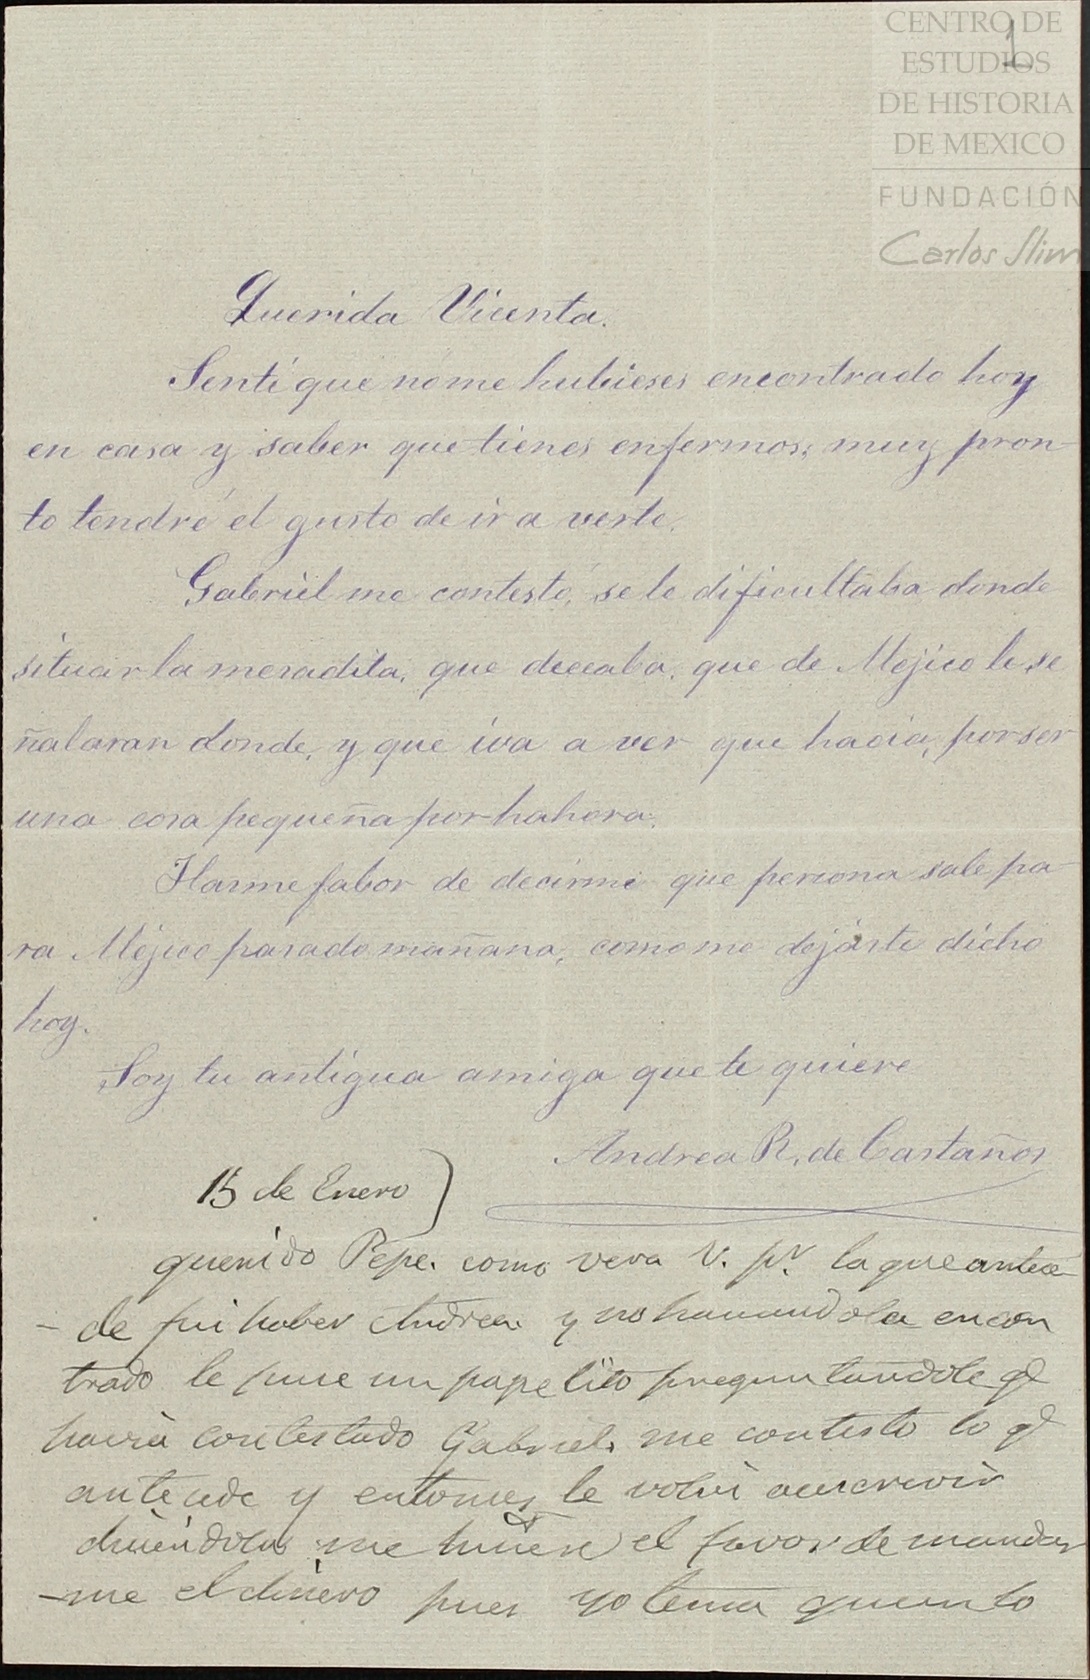 CENTRO DE
ESTUDIOS
DE HISTORIA
DE MEXICO
FUNDACIÓN
Carlos Slim
1
Querida Vicenta.
Sentí que no me hubieses encontrado hoy
en casa y saber que tienes enfermos; muy pron-
to tendré el gusto de ir a verte.
Gabriel me contestó, se le dificultaba donde
situar la mesadita, que deceaba, que de Mejico le se
ñalaran donde, y que iva a ver que hacia, por ser
una cosa pequeña por hahora.
Hasme fabor de decirme que persona sale pa-
ra Méjico pasado mañana, como me dejáste dicho
hoy.
Soy tu antigua amiga que te quiere
Andrea R. de Castaños
15 de Enero
querido Pepe. como vera V. pr. la que antece
- de fui haber Andrea y no haviendola encon
trado le puse un papelito preguntandole qe
havia contestado Gabriel, me contesto lo qe
antecede y entonces le volvi a escrevir
diciéndola me hiciese el favor de mandar
-me el dinero pues yo tenia quien lo